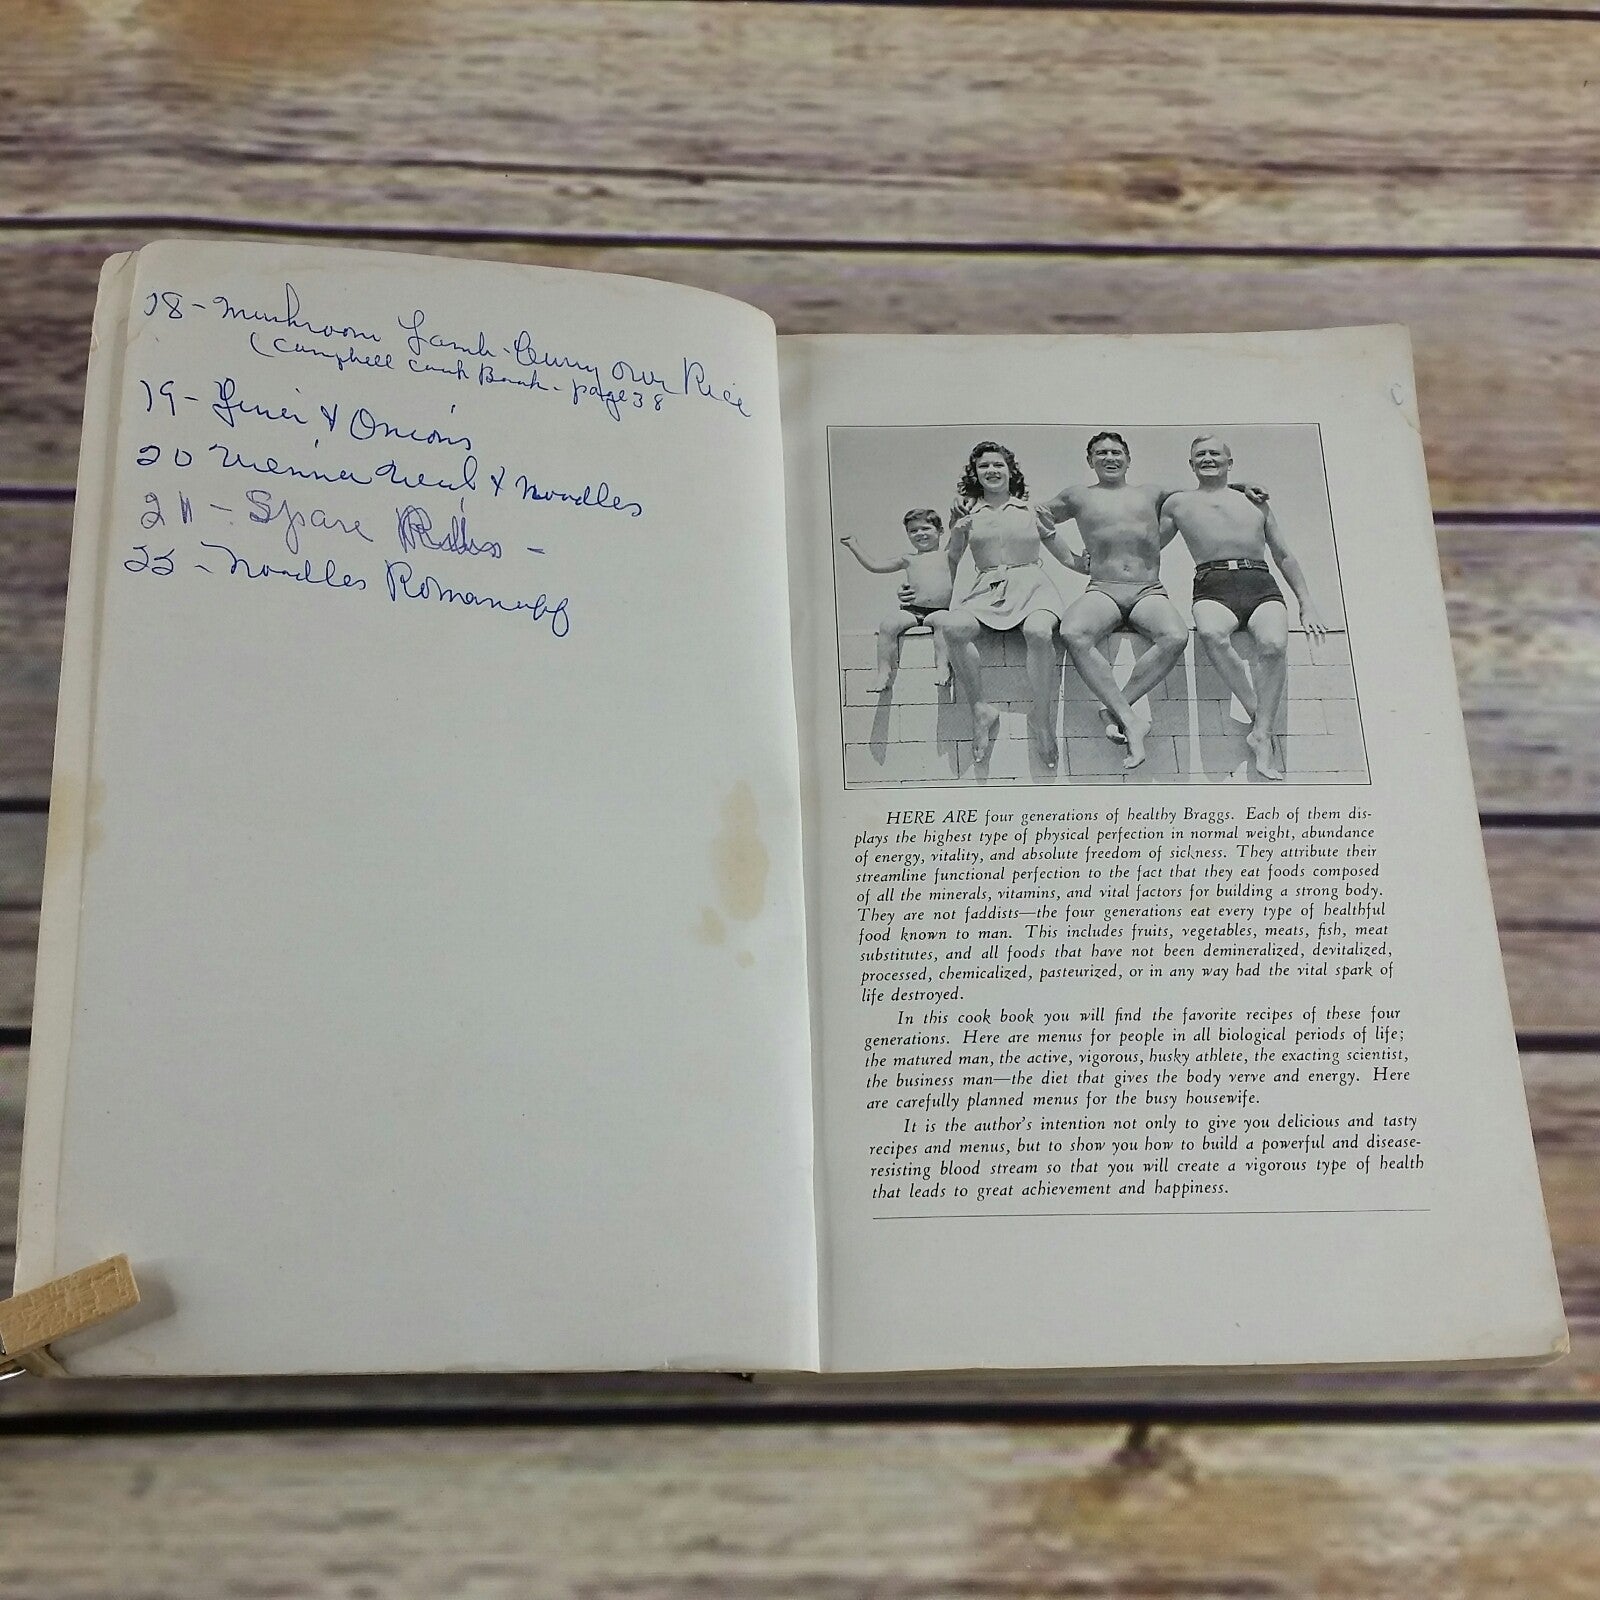 18 - Mushroom Lamb-Curry over Rice
(Campbell Cook Book - page 38
19 - Liver & Onions
20 Vienna Veal & Noodles
21 - Spare Ribs -
22 - Noodles Romanoff
HERE ARE four generations of healthy Braggs. Each of them dis-
plays the highest type of physical perfection in normal weight, abundance
of energy, vitality, and absolute freedom of sickness. They attribute their
streamline functional perfection to the fact that they eat foods composed
of all the minerals, vitamins, and vital factors for building a strong body.
They are not faddists—the four generations eat every type of healthful
food known to man. This includes fruits, vegetables, meats, fish, meat
substitutes, and all foods that have not been demineralized, devitalized,
processed, chemicalized, pasteurized, or in any way had the vital spark of
life destroyed.
In this cook book you will find the favorite recipes of these four
generations. Here are menus for people in all biological periods of life;
the matured man, the active, vigorous, husky athlete, the exacting scientist,
the business man—the diet that gives the body verve and energy. Here
are carefully planned menus for the busy housewife.
It is the author's intention not only to give you delicious and tasty
recipes and menus, but to show you how to build a powerful and disease-
resisting blood stream so that you will create a vigorous type of health
that leads to great achievement and happiness.